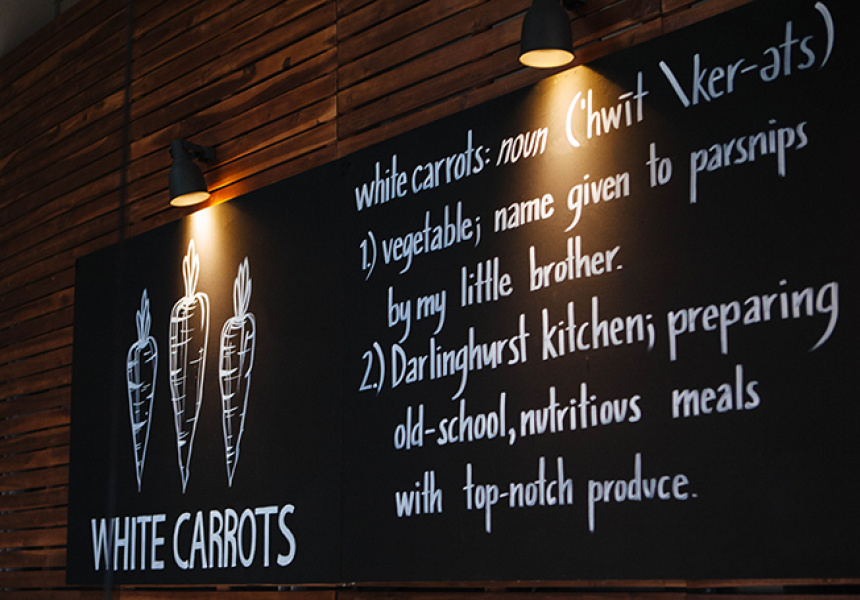 white carrots: noun ('hwīt \ker-əts)
1.) vegetable; name given to parsnips
by my little brother.
2.) Darlinghurst kitchen; preparing
old-school, nutritious meals
with top-notch produce.
WHITE CARROTS